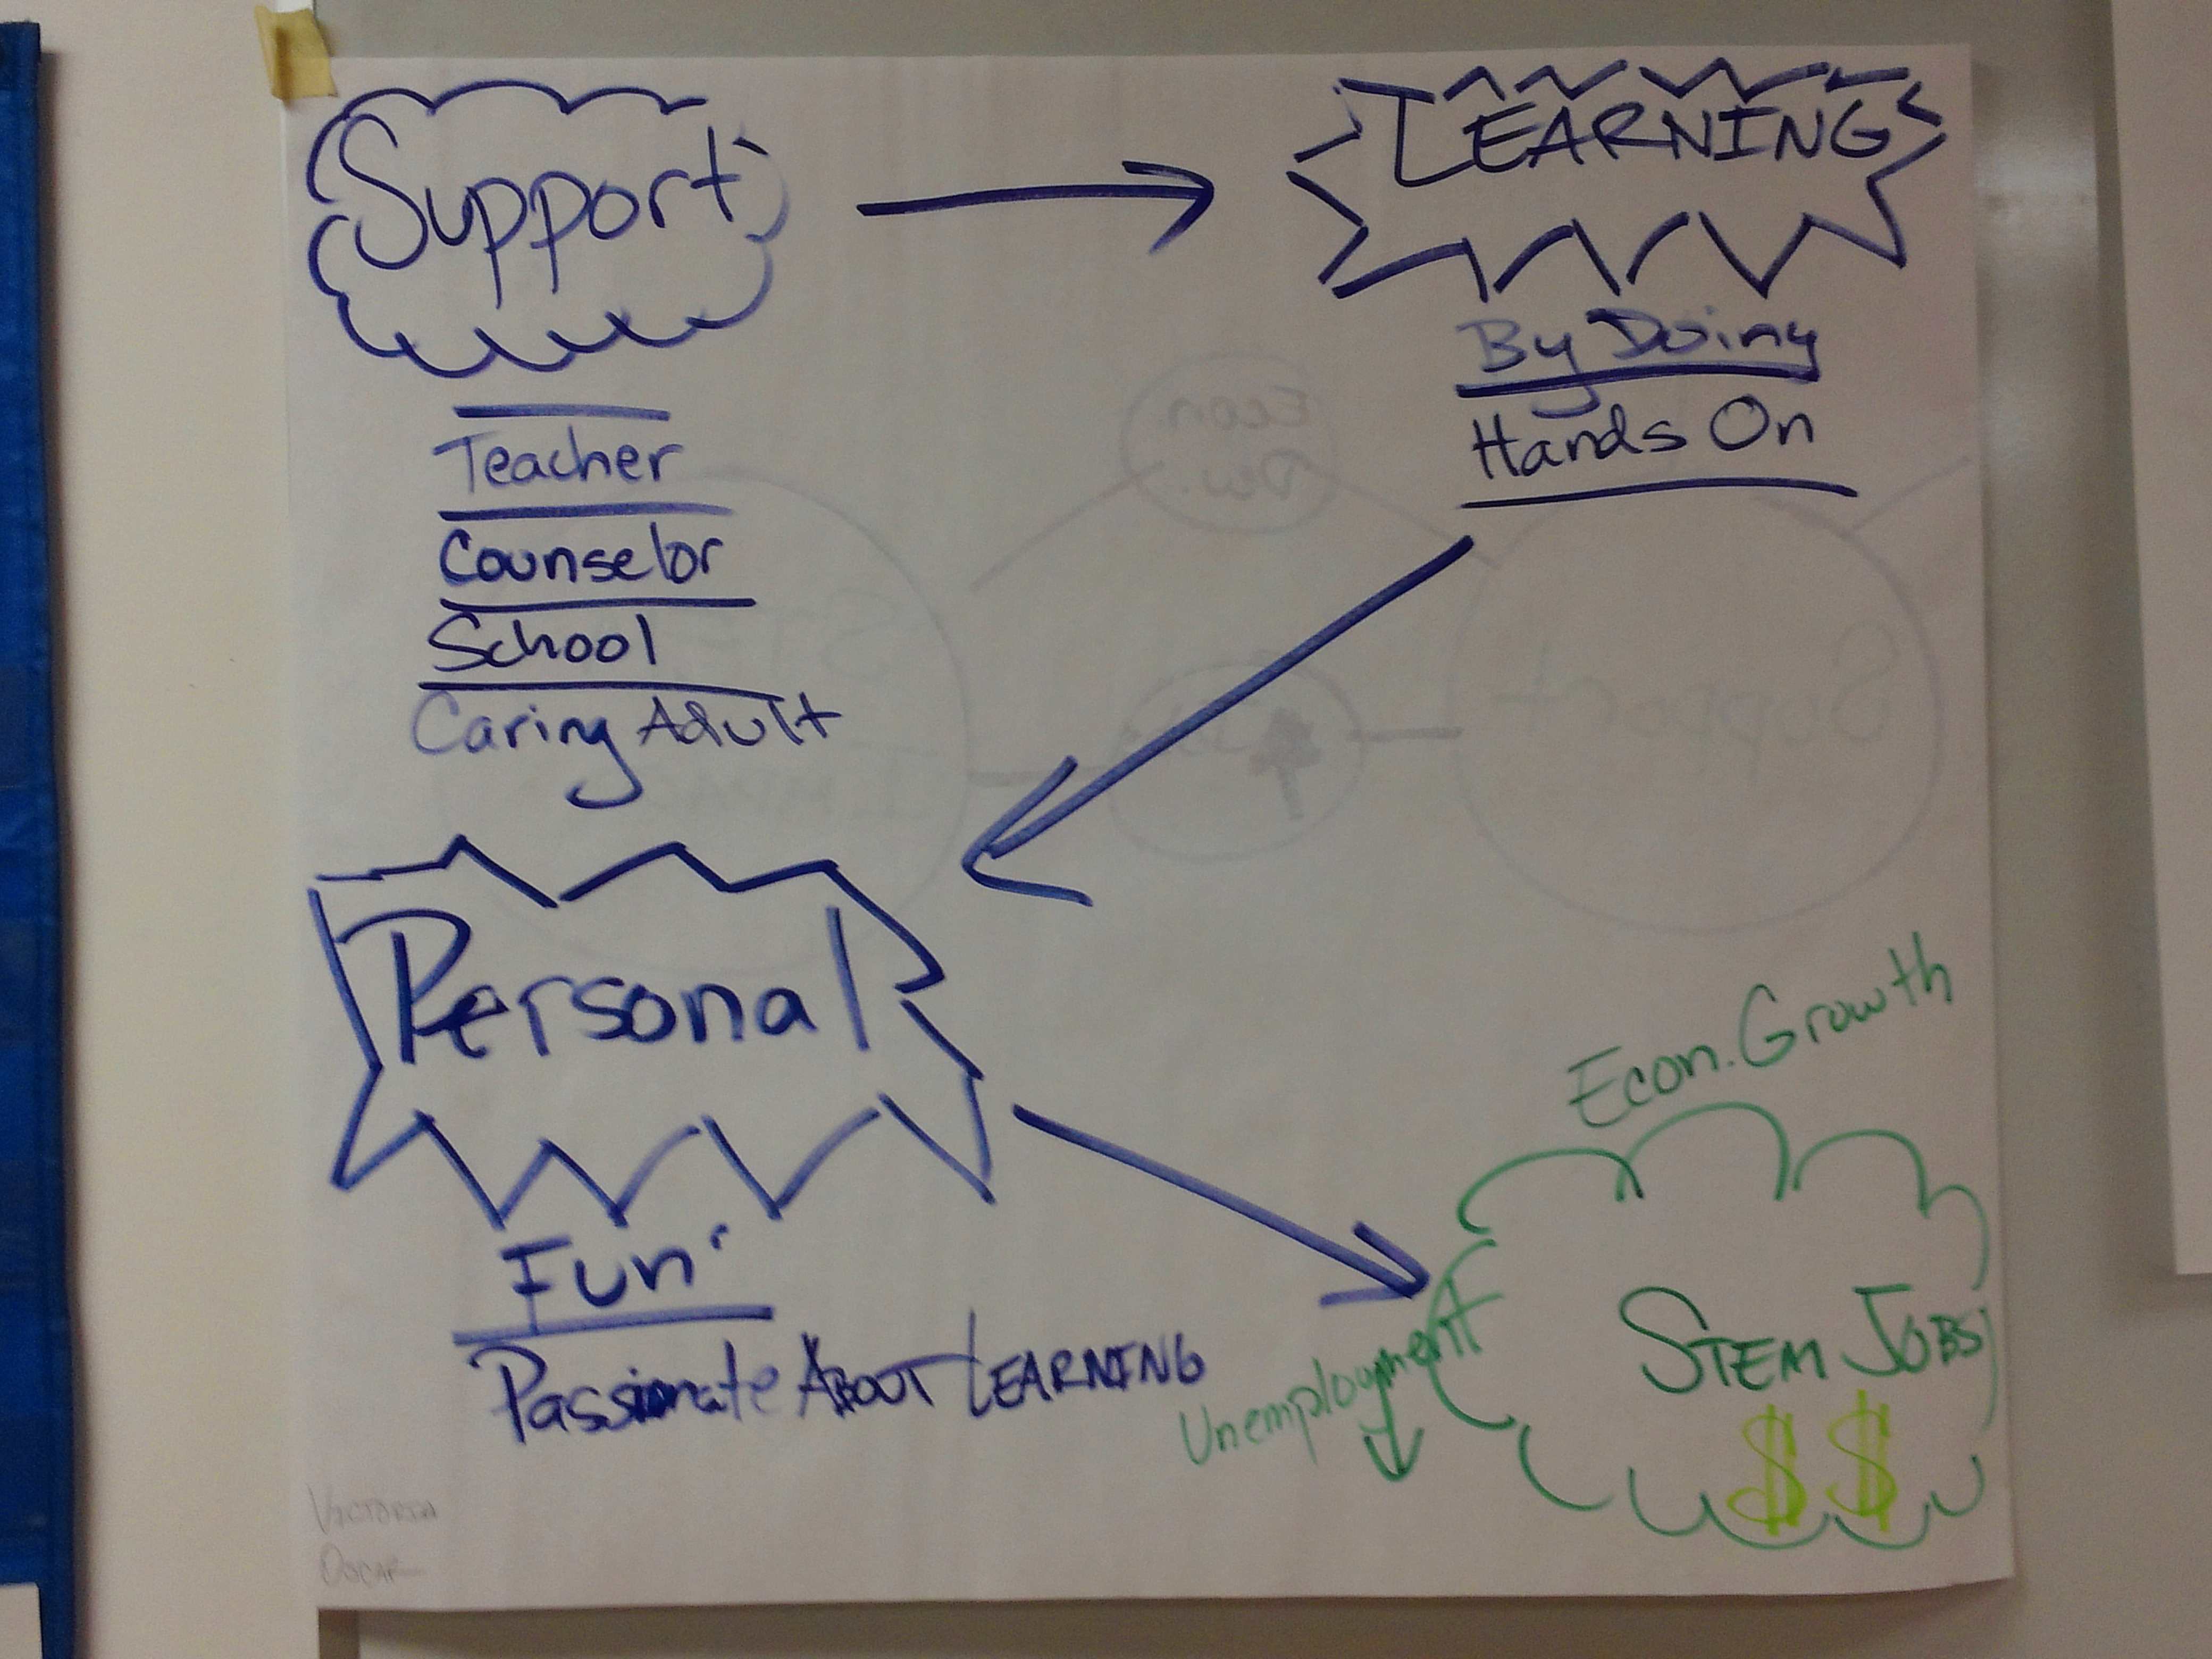 Support
LEARNING
By Doing
Hands On
Teacher
Counselor
School
Caring Adult
Personal
Fun
Passionate ABOUT LEARNING
Econ. Growth
STEM JOBS
$ $
Unemployment
VICTORIA
OSCAR
Econ.
Dev.
Support